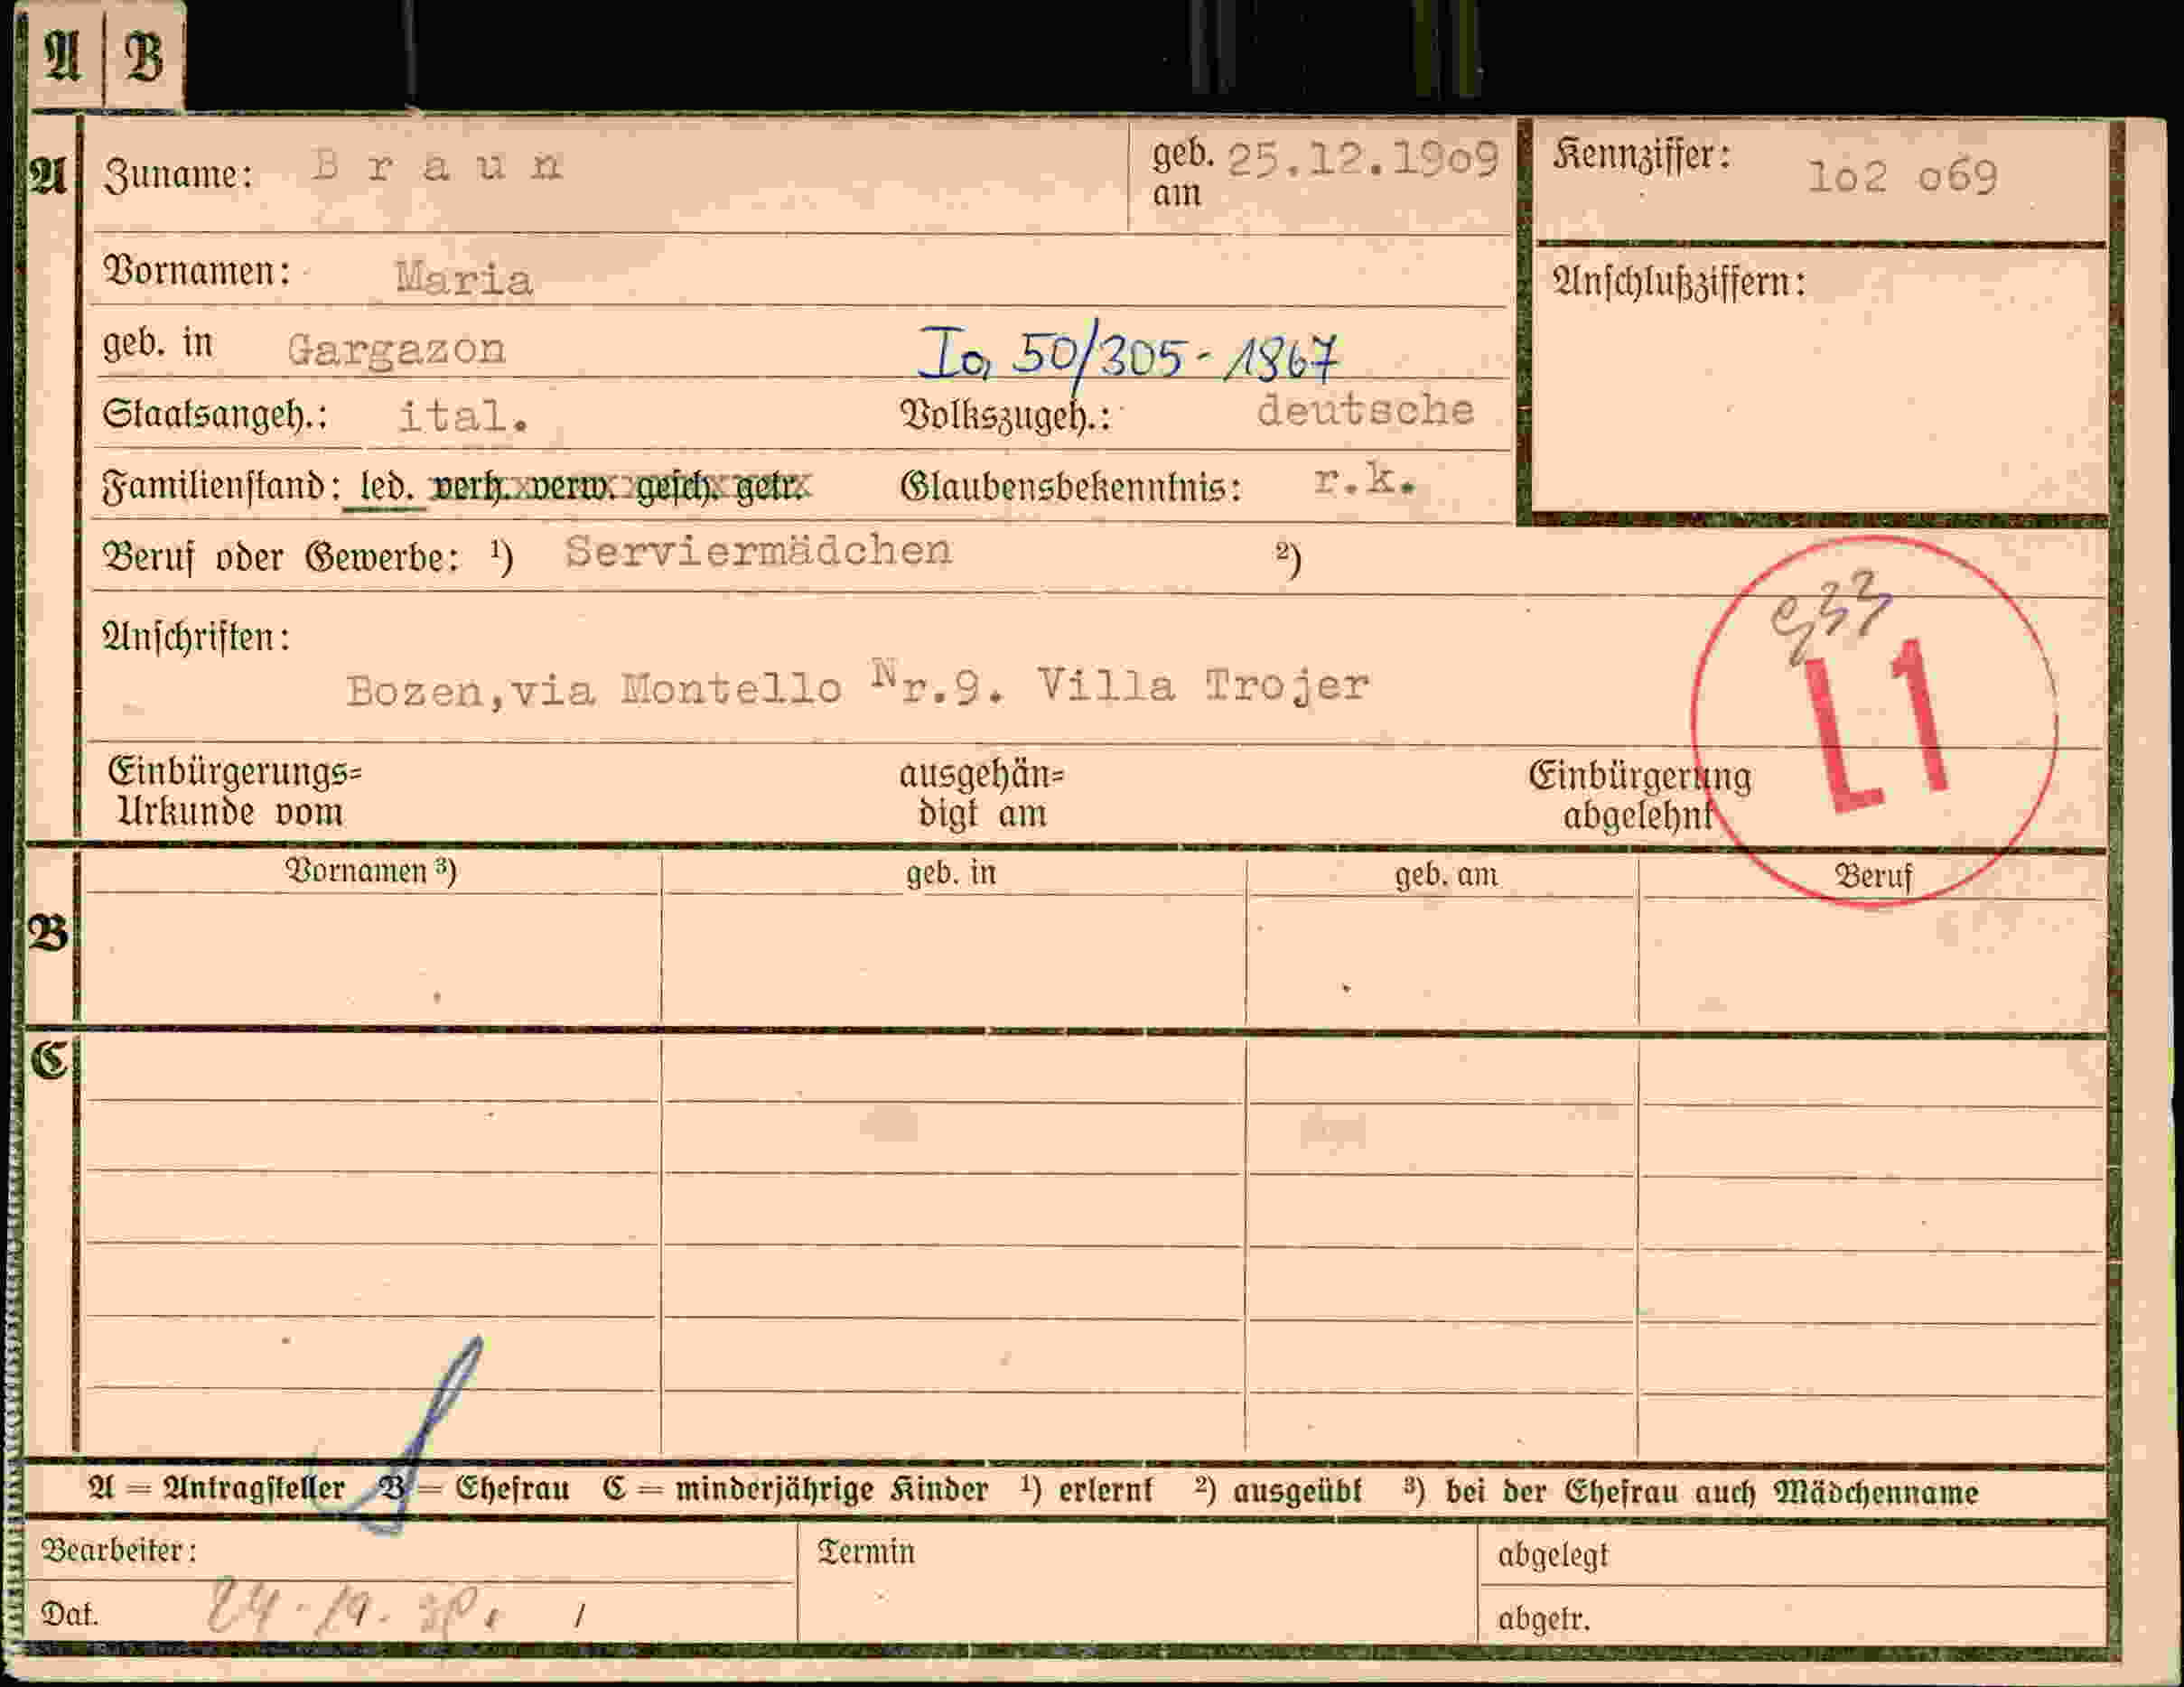 A B
A Zuname: Braun geb. am 25.12.1909 Kennziffer: 1o2 o69
Vornamen: Maria Anschlußziffern:
geb. in Gargazon Ia, 50/305-1867
Staatsangeh.: ital. Volkszugeh.: deutsche
Familienstand: led. verh. verw. gesch. getr. Glaubensbekenntnis: r.k.
Beruf oder Gewerbe: ¹) Serviermädchen ²)
Anschriften:
L1
Bozen,via Montello Nr.9. Villa Trojer
Einbürgerungs= ausgehän= Einbürgerung
Urkunde vom digt am abgelehnt
Vornamen ³) geb. in geb. am Beruf
B
C
A = Antragsteller B = Ehefrau C = minderjährige Kinder ¹) erlernt ²) ausgeübt ³) bei der Ehefrau auch Mädchenname
Bearbeiter: Termin abgelegt
Dat. abgetr.